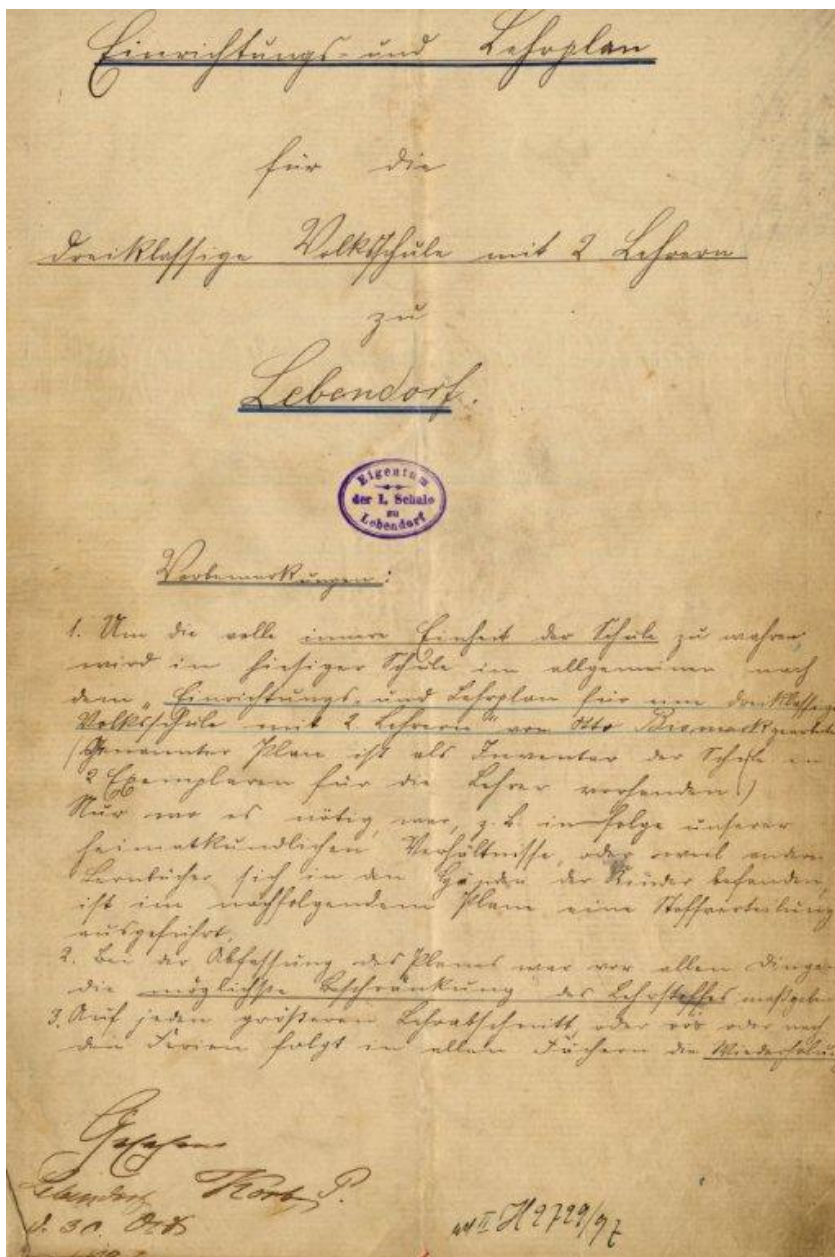 Einrichtungs- und Lehrplan
für die
dreiklassige Volksschule mit 2 Lehrern
zu
Lebendorf.
Eigentum
der I. Schule
zu
Lebendorf
Vorbemerkungen:
1. Um die volle innere Einheit der Schule zu wahren,
wird in hiesiger Schule im allgemeinen nach
dem „Einrichtungs- und Lehrplan für eine dreiklassige
Volksschule mit 2 Lehrern" von Otto Bismark
(Genannter Plan ist als Inventar der Schule in
2 Exemplaren für die Lehrer vorhanden.)
Nur wo es nötig war, z. B. in folge unserer
heimatkundlichen Verhältnisse, oder weil andere
Lernbücher sich in den Händen der Kinder befanden,
ist im nachfolgendem Plane eine Stoffverteilung
ausgeführt.
2. Bei der Abfassung des Planes war vor allen Dingen
die möglichste Beschränkung des Lehrstoffes maßgebend
3. Auf jeden größeren Lehrabschnitt, oder vor oder nach
den Ferien folgt in allen Fächern die Wiederholung
Gesehen
Lebendorf Korb P.
d. 30. Octb
II H 2729/97